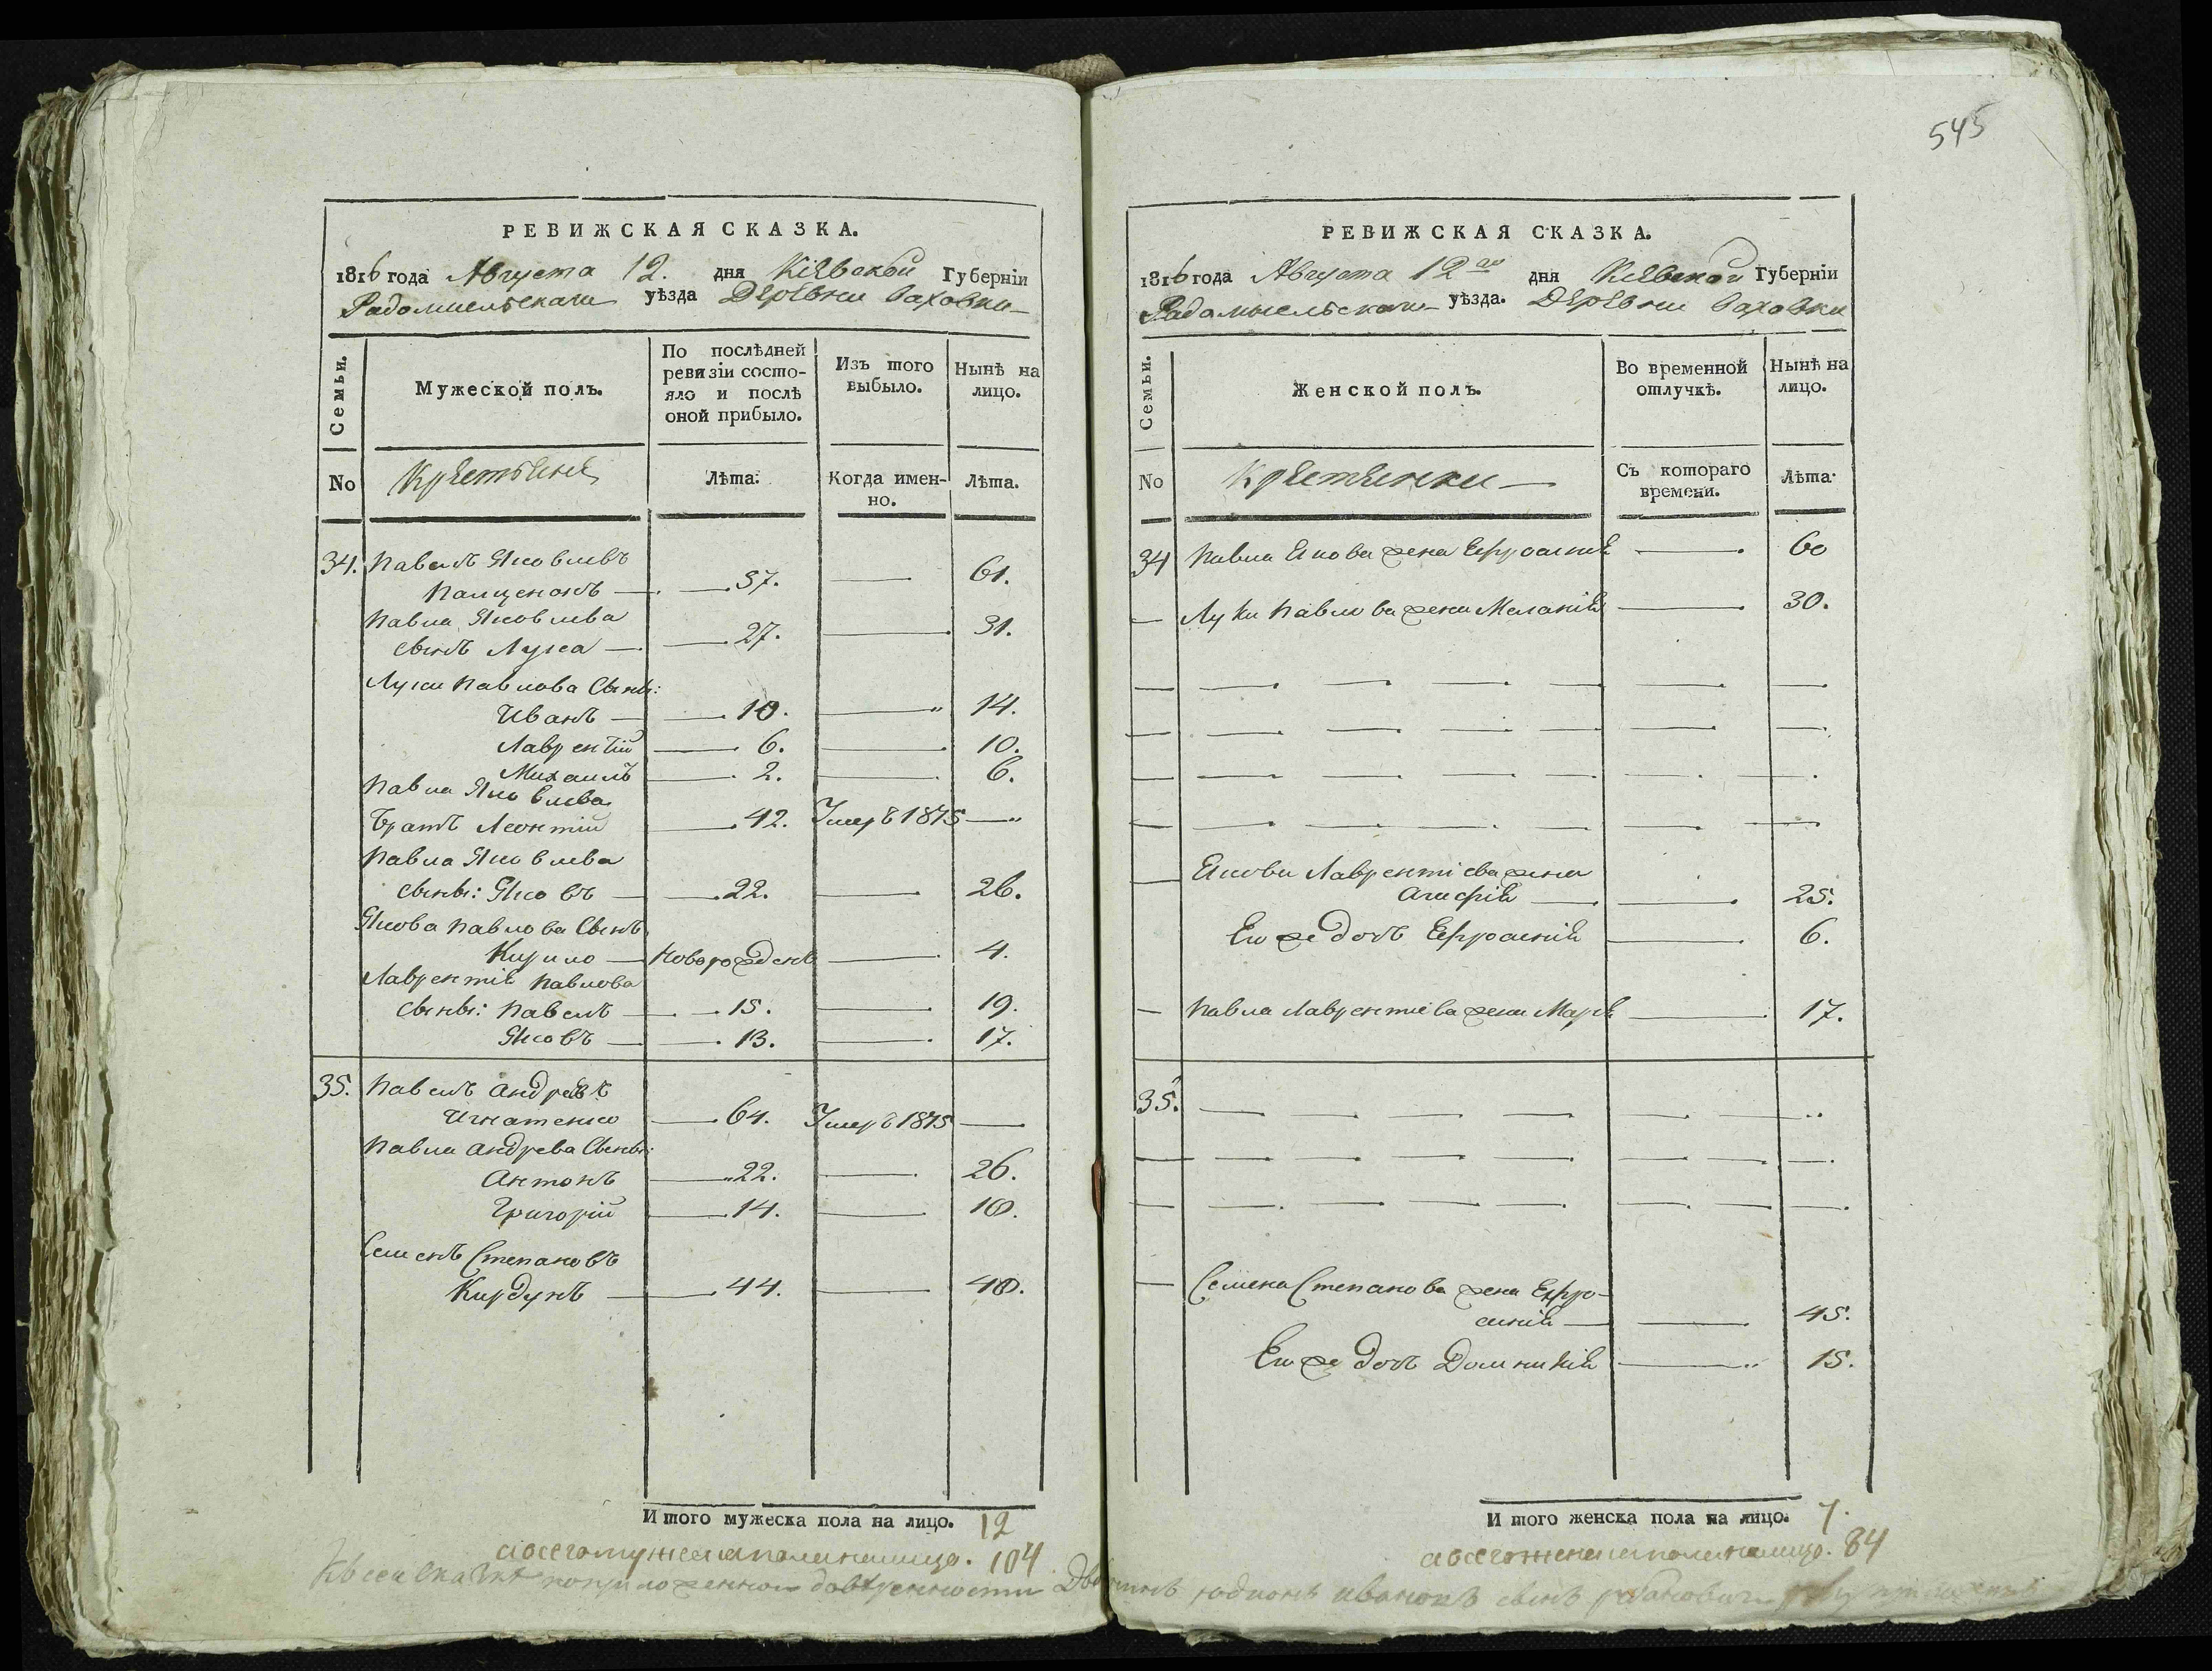 РЕВИЖСКАЯ СКАЗКА.
1816 года Августа 12. дня Кіевской Губерніи
Радомысльскаго уѣзда Деревни Ваховки
Семьи.
Мужеской полъ.
По послѣдней ревизіи состояло и послѣ оной прибыло.
Изъ того выбыло.
Нынѣ на лицо.
No
Крестьяне
Лѣта.
Когда именно.
Лѣта.
34. Павелъ Яковлевъ
— 57. — 61.
Павла Яковлева
сынъ Лука — 27. — 31.
Луки Павлова сыны:
Иванъ — 10. — 14.
Лаврентій — 6. — 10.
Михаилъ — 2. — 6.
Павла Яковлева
братъ Леонтій — 42. Умеръ 1815 —
Павла Яковлева
сыны: Яковъ — 22. — 26.
Якова Павлова сынъ
Кирило — новорожденъ — 4.
Лаврентія Павлова
сыны: Павелъ — 15. — 19.
Яковъ — 13. — 17.
35. Павелъ Андреевъ
Игнатенко — 64. Умеръ 1815 —
Павла Андреева сыны:
Антонъ — 22. — 26.
Григорій — 14. — 18.
Семенъ Степановъ
Кирдунъ — 44. — 48.
Итого мужеска пола на лицо. 12
а всего мужеска пола на лицо. 104
545
РЕВИЖСКАЯ СКАЗКА.
1816 года Августа 12го дня Кіевской Губерніи
Радомысльскаго уѣзда. Деревни Ваховки
Семьи.
Женской полъ.
Во временной отлучкѣ.
Нынѣ на лицо.
No
Крестьянки —
Съ котораго времени.
Лѣта.
34 Павла Якова жена Ефросинія — 60
— Луки Павлова жена Меланія — 30.
— Якова Лаврентіева жена
Агафія — 25.
Ею же дочь Ефросинія — 6.
— Павла Лаврентіева жена Марія — 17.
35.
— Семена Степанова жена Ефро-
синія — 45.
Ею же дочь Домникія — 15.
Итого женска пола на лицо. 7.
а всего женска пола на лицо. 84